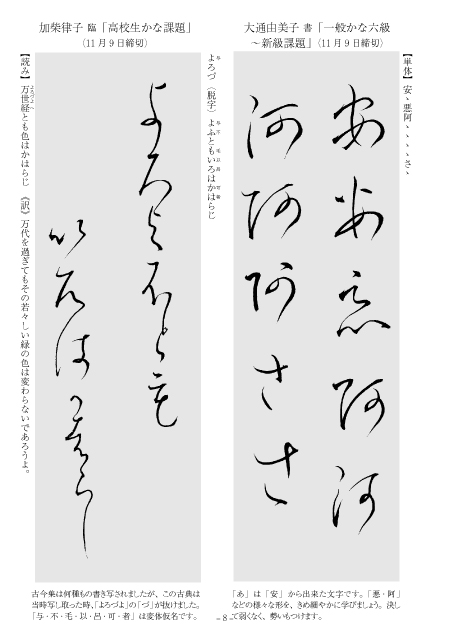 大通由美子 書「一般かな六級
～新級課題」（11月9日締切）
【単体】安ゝ悪阿ゝゝゝゝさゝ
安
安
悪
阿
阿
阿
阿
阿
さ
さ
加柴律子 臨「高校生かな課題」
（11月9日締切）
よろづ（脱字）よふともいろはかはらじ
よろよふとも
いろはかはらし
【読み】万世経とも色はかはらじ 《訳》万代を過ぎてもその若々しい緑の色は変わらないであろうよ。
「あ」は「安」から出来た文字です。「悪・阿」
などの様々な形を、きめ細やかに学びましょう。決し
て弱くなく、勢いもつけます。
古今集は何種もの書き写されましたが、この古典は
当時写し取った時、「よろづよ」の「づ」が抜けました。
「与・不・毛・以・呂・可・者」は変体仮名です。
- 8 -